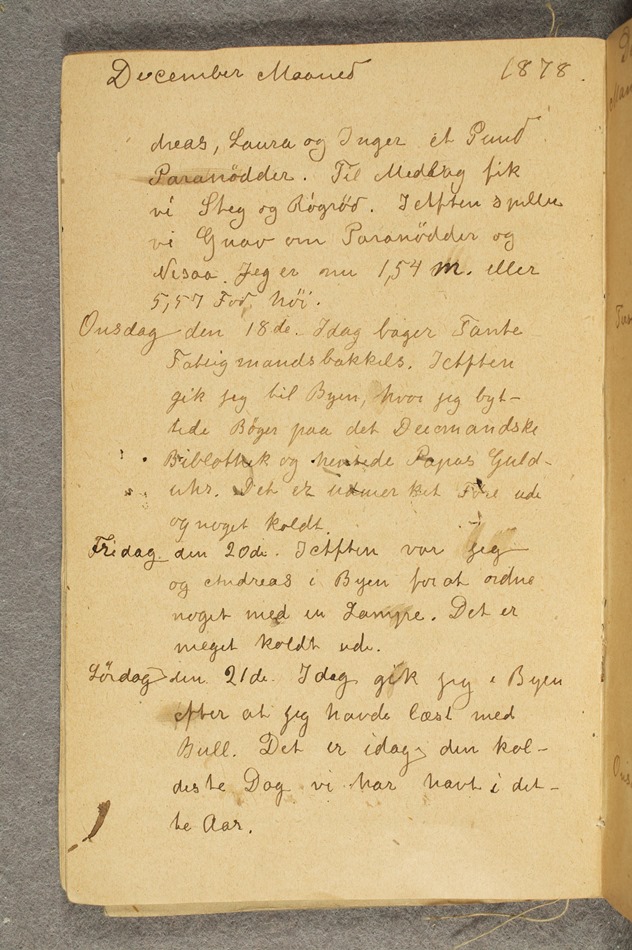 December Maaned 1878.
dreas, Laura og Inger et Pund
Paranödder. Til Meddag fik
vi Steg og Rögröd. I Aften spillte
vi Gnav om Paranödder og
Nesaa. Jeg er nu 1,54 m. eller
5,57 Fod höi.
Onsdag den 18de. Idag bager Tante
Fatigmandsbakkels. I Aften
gik jeg til Byen, hvor jeg byt-
tede Böger paa det Deicmandske
Bibliothek og hentede Papas Guld-
uhr. Det er udmerket Före ude
og noget koldt.
Fridag den 20de. I Aften var jeg
og Andreas i Byen for at ordne
noget med en Lampe. Det er
meget koldt ude.
Lördag den 21de. Idag gik jeg i Byen
efter at jeg havde læst med
Bull. Det er idag den kol-
deste Dag vi har havt i det-
te Aar.